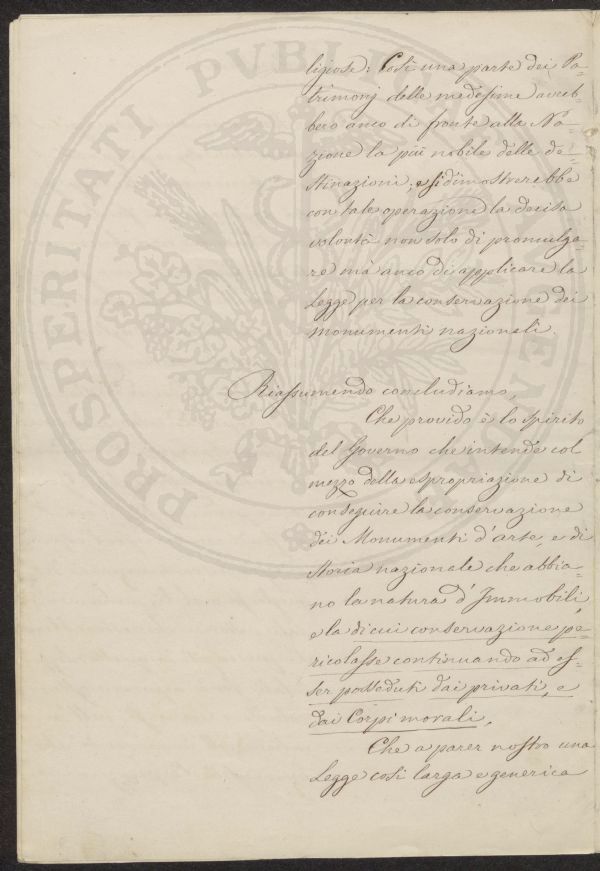 ligiose: Così una parte dei Pa-
trimonj delle medesime avreb-
bero anco di fronte alla Na-
zione la più nobile delle de-
stinazioni, e si dimostrerebbe
con tale operazione la decisa
volontà non solo di promulga-
re mà anco di applicare la
Legge per la conservazione dei
Monumenti nazionali.
Riassumendo concludiamo,
Che provido è lo spirito
del Governo che intende col
mezzo della espropriazione di
conseguire la conservazione
dei Monumenti d'arte, e di
Storia nazionale che abbia-
no la natura d'Immobili,
e la di cui conservazione pe-
ricolasse continuando ad es-
ser posseduti dai privati, e
dai Corpi morali,
Che a parer nostro una
Legge così larga e generica
PROSPERITATI PVBLI